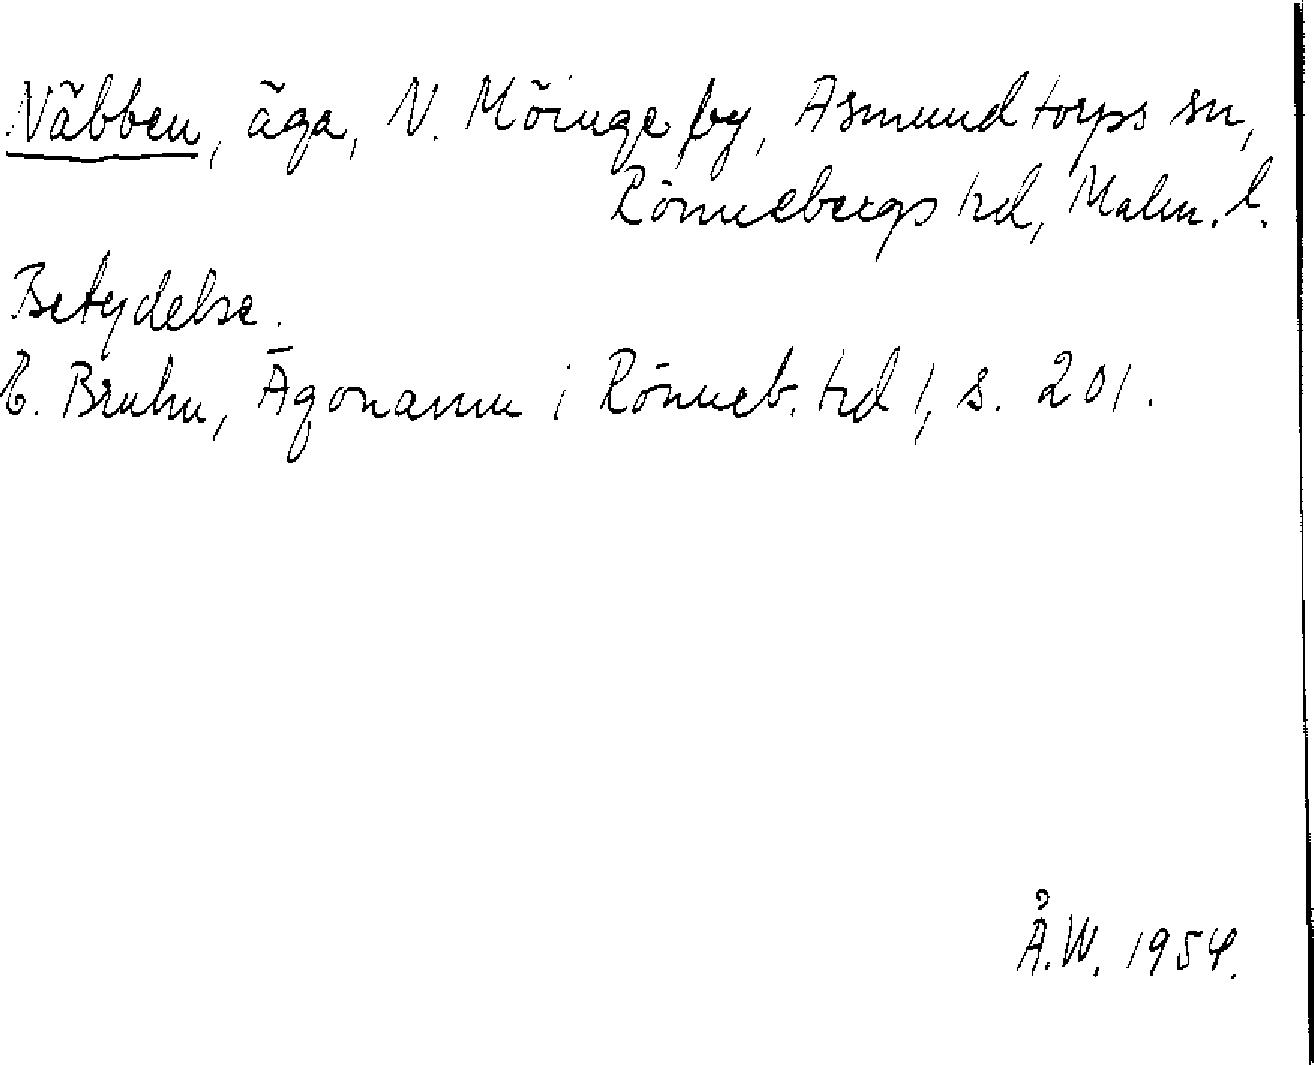 Näbben, äga, N. Möinge by, Asmundtorps sn,
Rönnebergs hd, Malm. l.
Betydelse.
E. Bruhn, Ägonamn i Rönneb. hd I, s. 201.
Å.W. 1954.